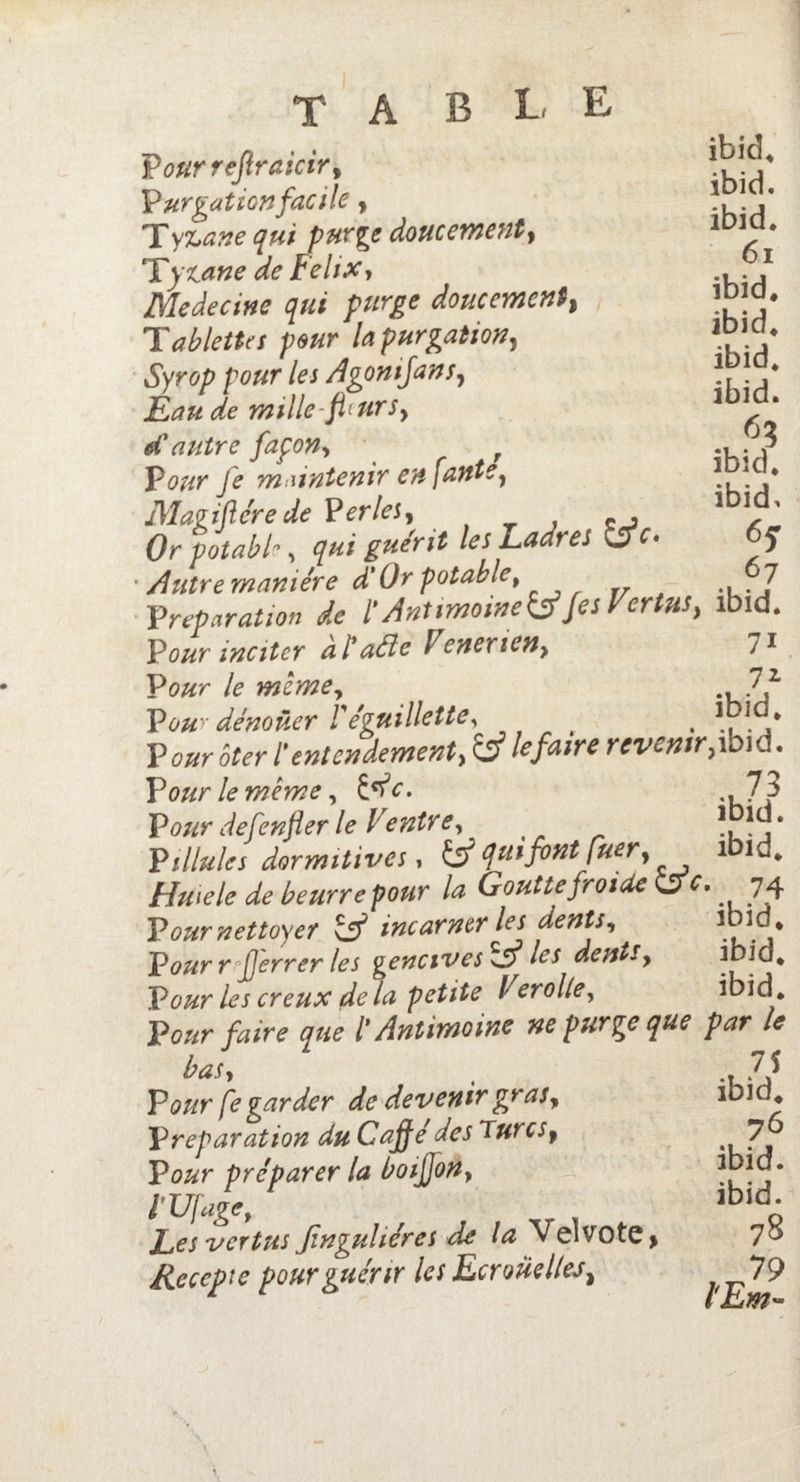 TABLE
Pour reſtraicir, ibid.
Purgation facile, ibid.
Tyzane qui purge doucement, ibid.
Tyzane de Felix, 61
Medecine qui purge doucement, ibid.
Tablettes pour la purgation, ibid.
Syrop pour les Agoniſans, ibid.
Eau de mille-fleurs, ibid.
d'autre façon, 63
Pour ſe maintenir en ſanté, ibid.
Magiſtére de Perles, ibid.
Or potable, qui guérit les Ladres &c. 65
Autre maniére d'Or potable, 67
Preparation de l'Antimoine & ſes Vertus, ibid.
Pour inciter à l'acte Venerien, 71
Pour le même, 72
Pour dénoüer l'éguillette, ibid.
Pour ôter l'entendement, & le faire revenir, ibid.
Pour le même, &c. 73
Pour deſenfler le Ventre, ibid.
Pillules dormitives, & qui font ſuer, ibid.
Huiele de beurre pour la Goutte froide &c. 74
Pour nettoyer & incarner les dents, ibid.
Pour rſſerrer les gencives & les dents, ibid.
Pour les creux de la petite Verolle, ibid.
Pour faire que l'Antimoine ne purge que par le
bas, 75
Pour ſe garder de devenir gras, ibid.
Preparation du Caffé des Turcs, 76
Pour préparer la boiſſon, ibid.
l'Uſage, ibid.
Les vertus ſinguliéres de la Velvote, 78
Recepte pour guérir les Ecroüelles, 79
l'Em-